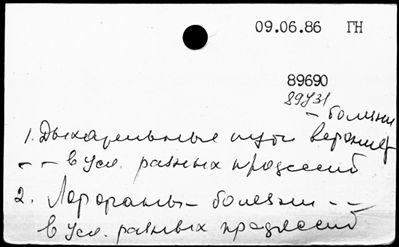 09.06.86 ГН
89690
89У31
- болезни
1. Дыхательные пути верхние
- - в усл. разных профессий
2. Лорорганы - болезни - -
в усл. разных профессий